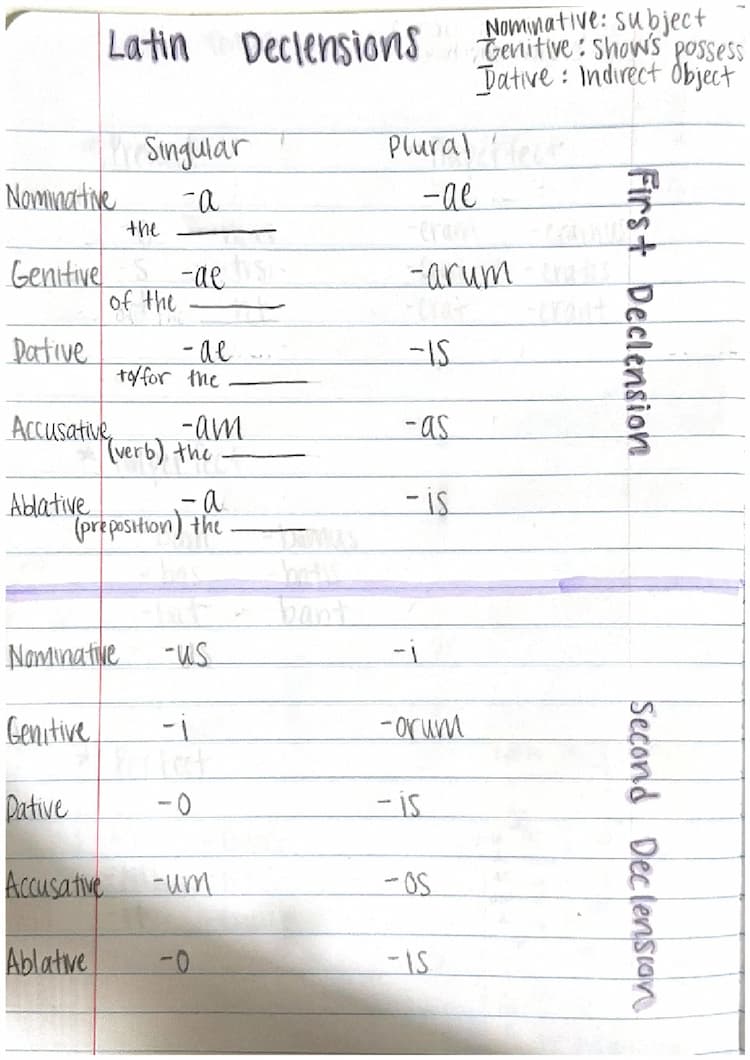 Latin Declensions
Nominative: subject
Genitive: shows possess
Dative: Indirect Object
Singular Plural
Nominative -a -ae
the ______
Genitive -ae -arum
of the ______
Dative -ae -is
to/for the ______
Accusative -am -as
(verb) the ______
Ablative -a -is
(preposition) the ______
First Declension
Nominative -us -i
Genitive -i -orum
Dative -o -is
Accusative -um -os
Ablative -o -is
Second Declension